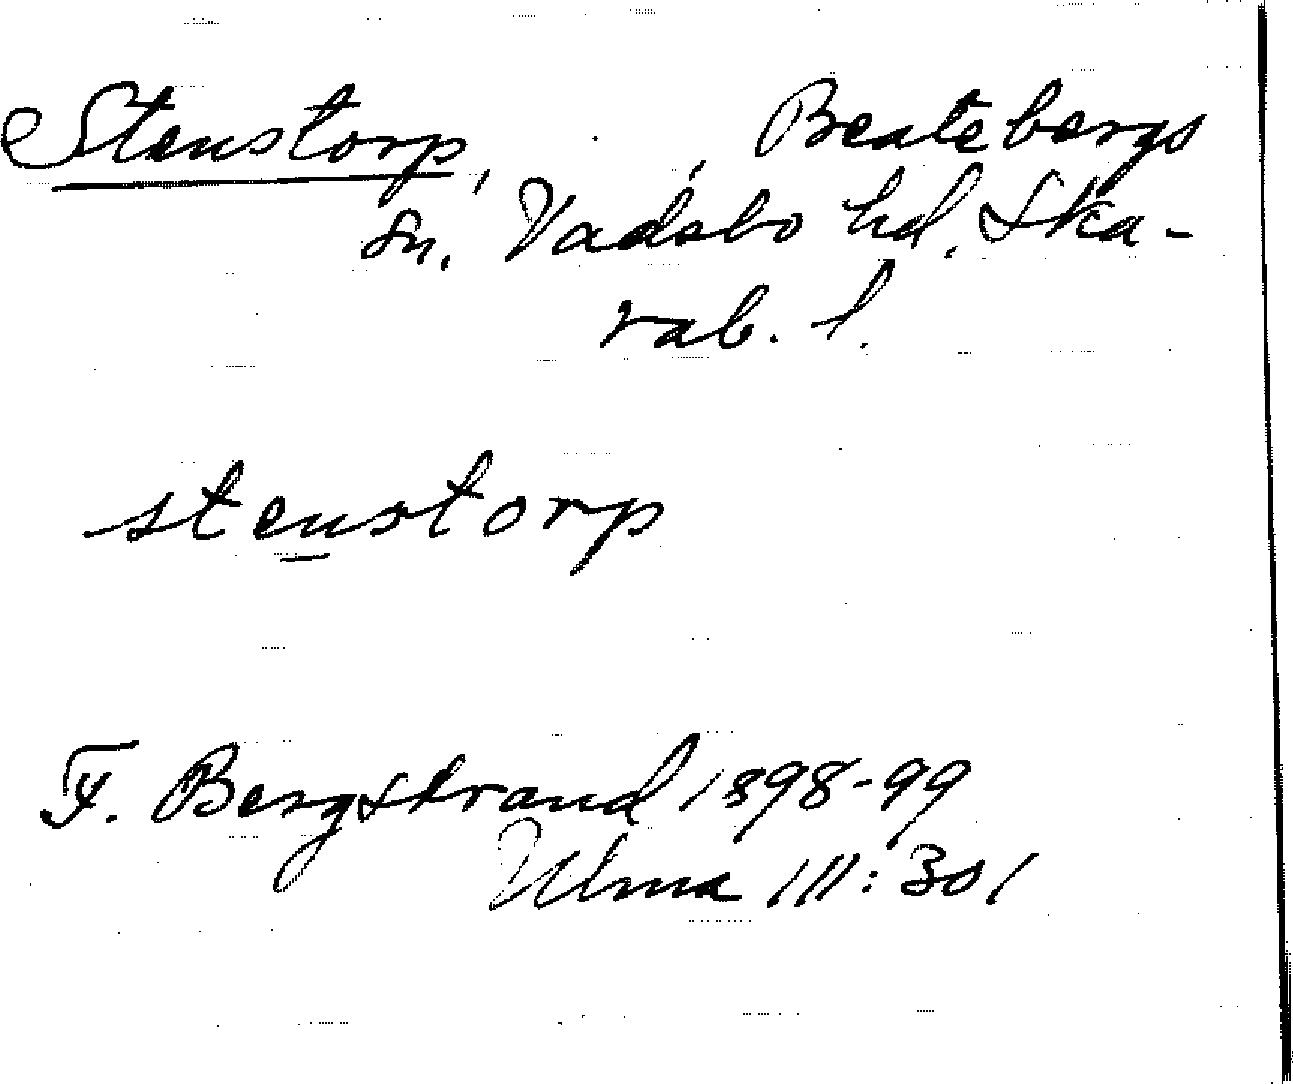 Stenstorp, Beatebergs
sn. Vadsbo hd. Ska-
rab. l.
stenstorp
F. Bergstrand 1898-99
Ulma 111:301